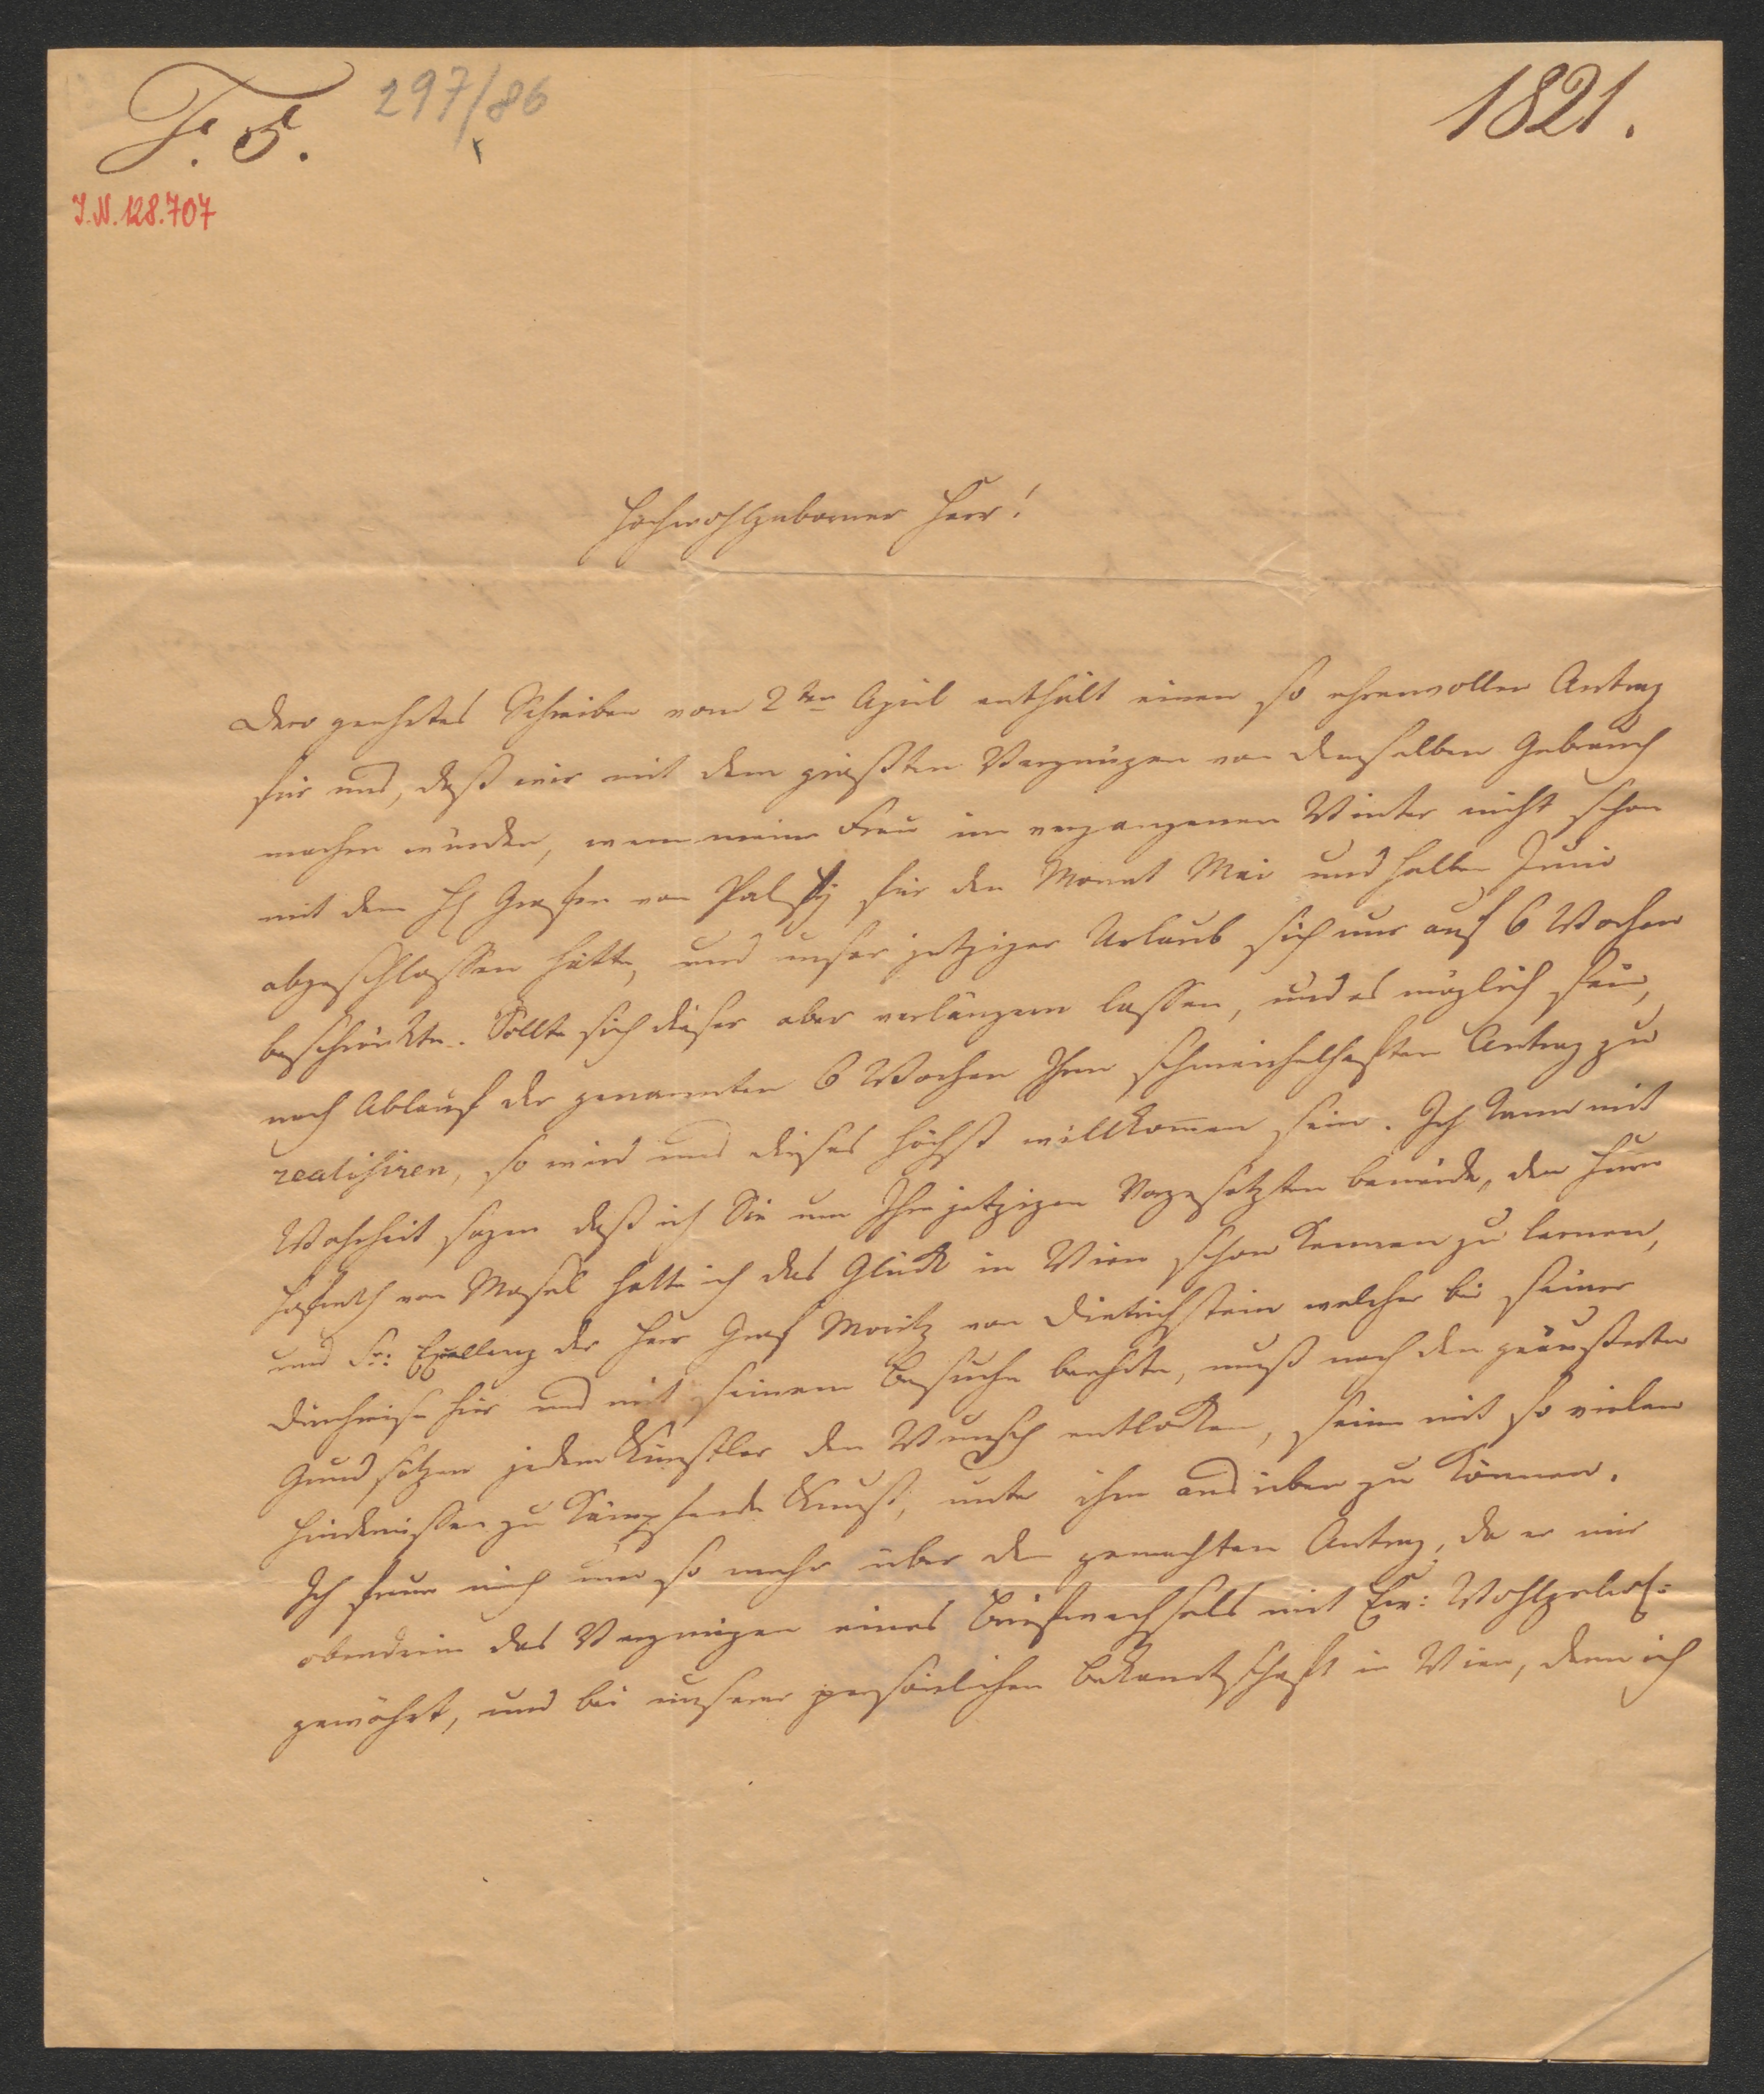 F. 5.
297/86
1821.
I.N. 128.707
Hochwohlgeborner Herr!
Dero geehrtes Schreiben vom 2ten April enthält einen so ehrenvollen Antrag
für uns, daß wir mit dem größten Vergnügen von demselben Gebrauch
machen würden, wenn meine Frau im vergangenen Winter nicht schon
mit dem H Grafen von Palffy für den Monat Mai und halben Juni
abgeschlossen hätte, und unser jetziger Urlaub sich nur auf 6 Wochen
beschränkte. Sollte sich dieser aber verlängern lassen, und es möglich sein,
nach Ablauf der genannten 6 Wochen Ihren schmeichelhaften Antrag zu
realisiren, so wird uns dieses höchst willkommen sein. Ich kann mit
Wahrheit sagen daß ich Sie um Ihre jetzigen Vorgesetzten beneide, den Herrn
Hofrath von Mosel hatte ich das Glück in Wien schon kennen zu lernen,
und Sr: Exzellenz der Herr Graf Moritz von Dietrichstein welcher bei seiner
Durchreise hier uns mit seinem Besuche beehrte, muß nach den geäußerten
Grundsätzen jedem Künstler den Wunsch entlocken, seine mit so vielen
Hindernissen zu kämpfende Kunst, unter ihm ausüben zu können.
Ich freue mich um so mehr über den gemachten Antrag, da er mir
obendrein das Vergnügen eines Briefwechsels mit Euer: Wohlgebor:
gewährt, und bei unserer persönlichen Bekanntschaft in Wien, denn ich